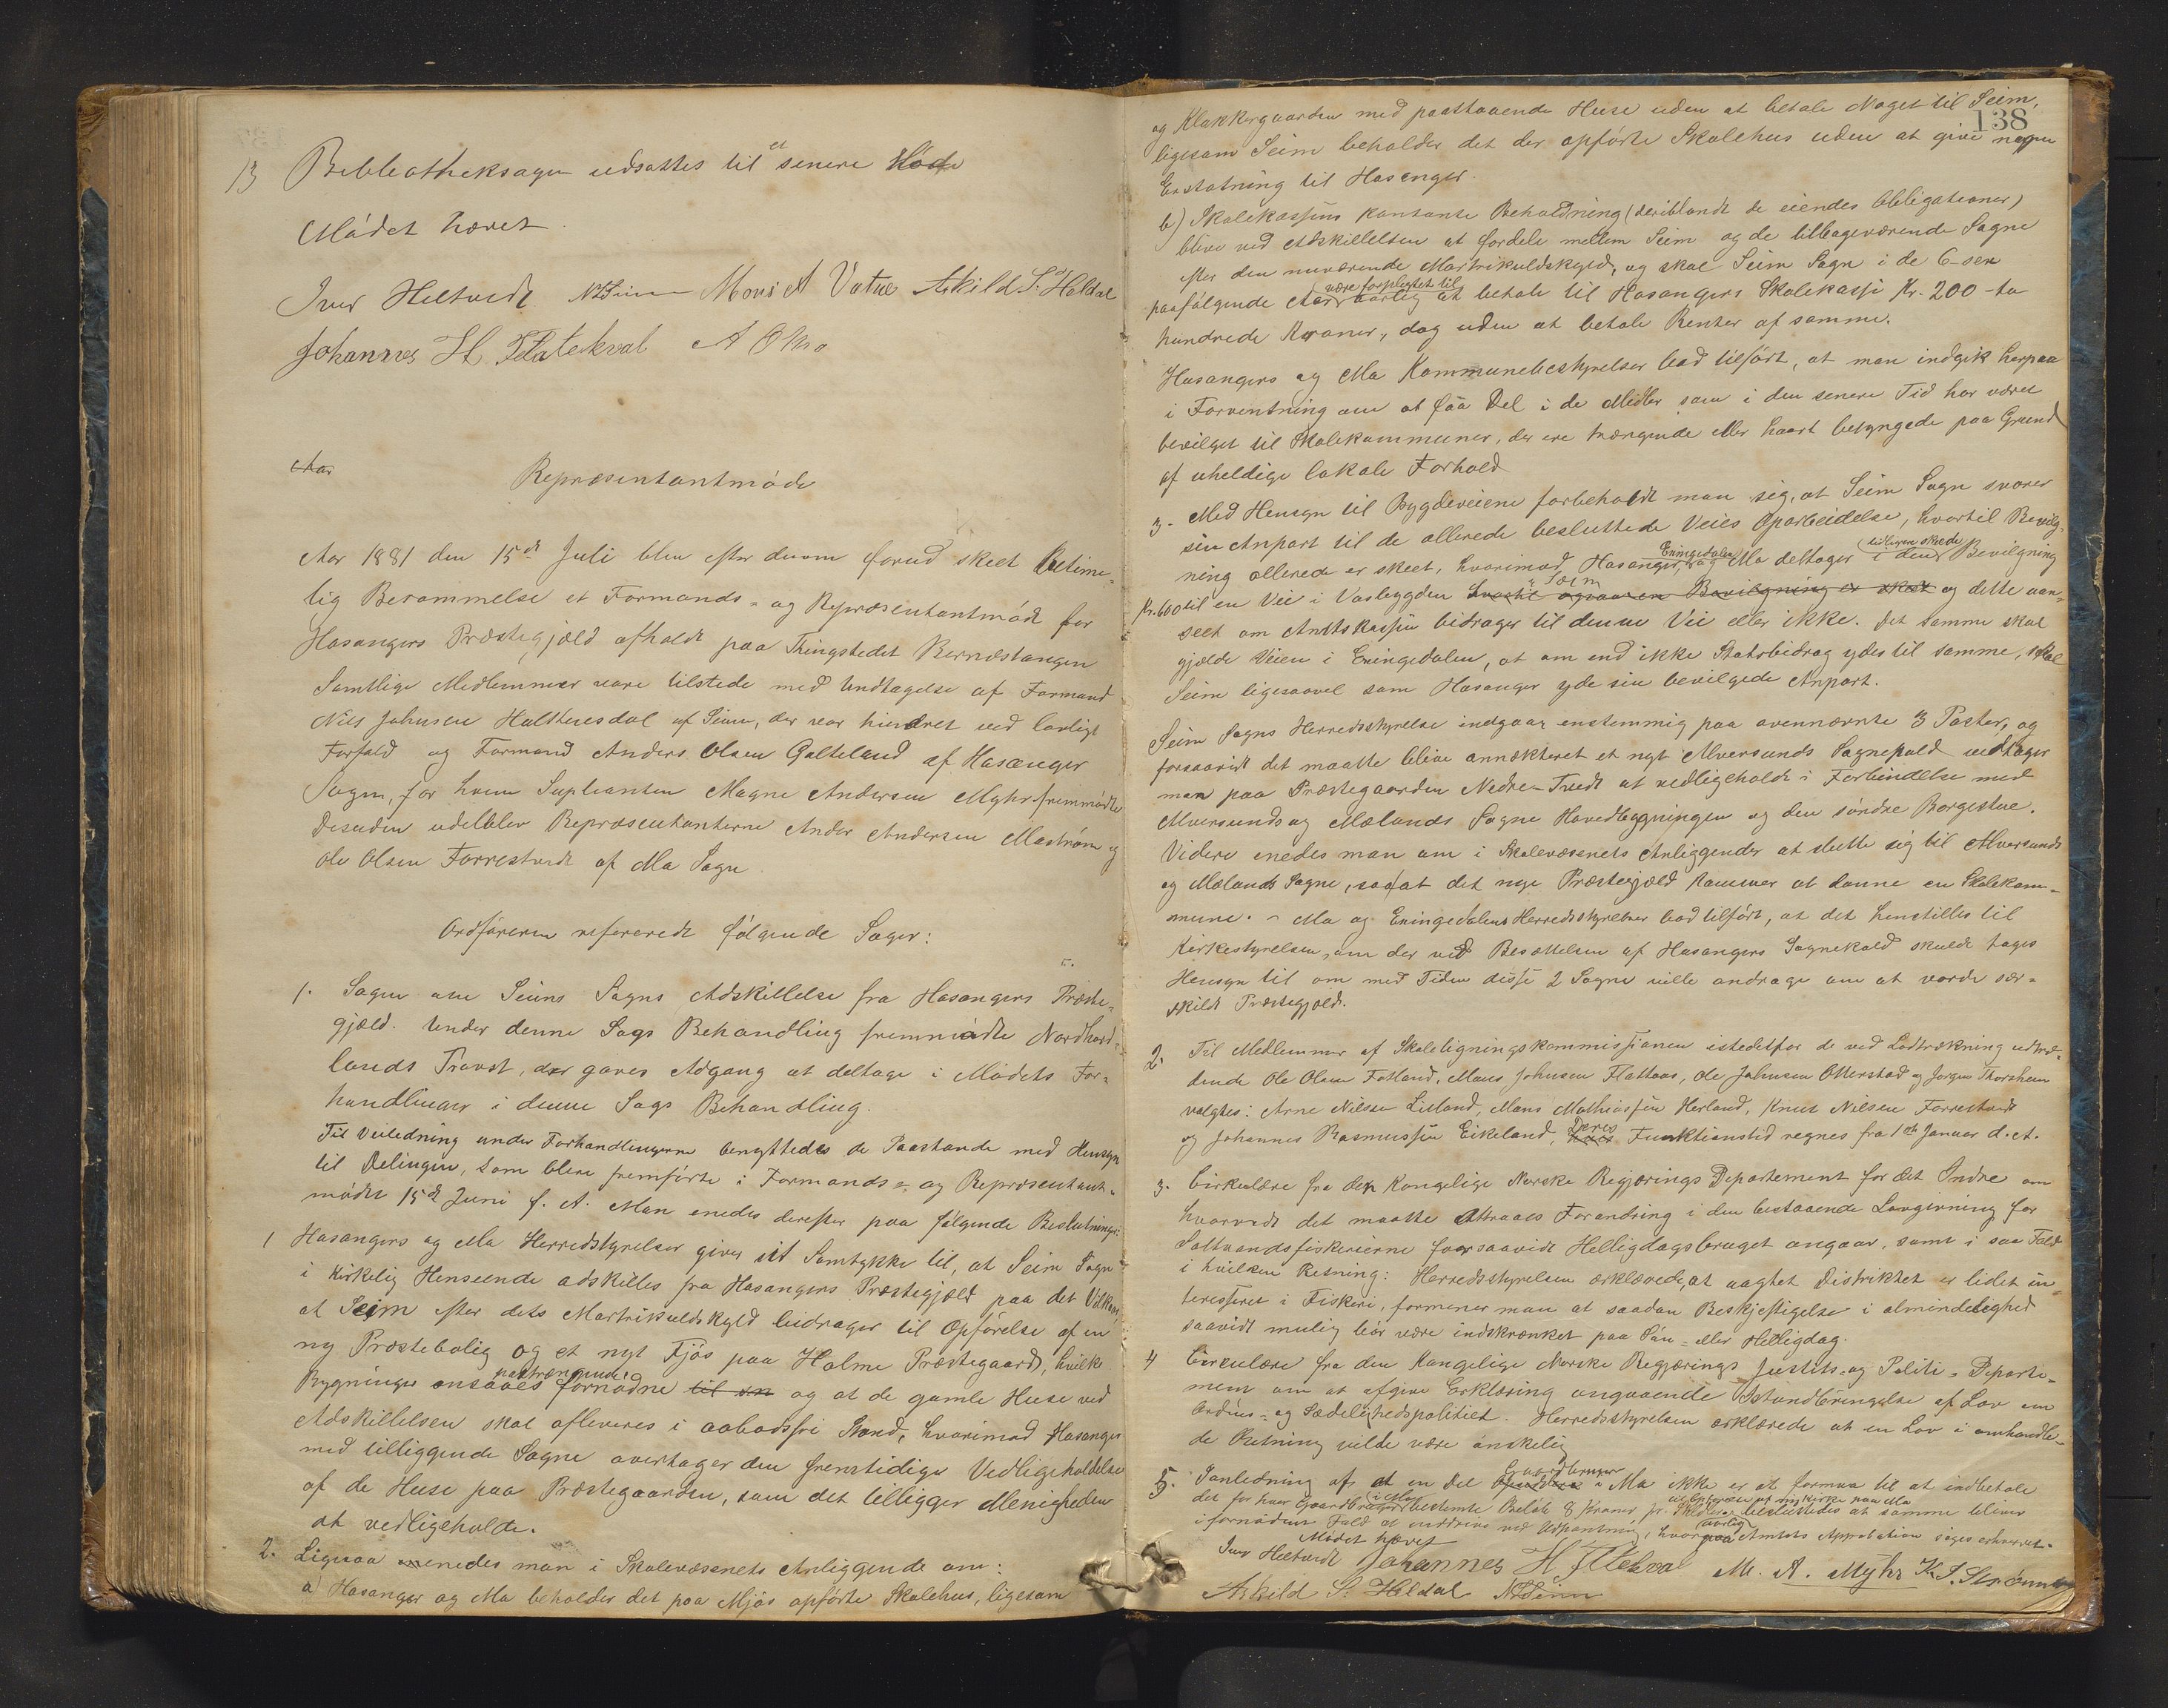 13 Bibliotheksagen udsattes til et senere Møde
Mødet hævet
Iver Hiltvedt NSeim Mons A Vatne Askild S. Haldal
Johannes H. Fletekval A Olsvo
Aar
Repræsentantmøde
Aar 1881 den 15de Juli blev efter derom forud skeet betime-
lig Berammelse et Formands- og Repræsentantmøde for
Hosangers Præstegjæld afholdt paa Thingstedet Bernestangen
Samtlige Medlemmer vare tilstede med Undtagelse af Formand
Nils Johnsen Helthusdal af Seim, der var hindret ved lovligt
Forfald og Formand Anders Olsen Galteland af Hosanger
Sogn, for hvem Supleanten Magne Andersen Myhr fremmødte
Desuden udeblev Repræsentanterne Anders Andersen Mostrøm og
Ole Olsen Forrestvedt af Mo Sogn
Ordføreren refererede følgende Sager:
1. Sagen om Seims Sogns Adskillelse fra Hosangers Præste-
gjæld. Under denne Sags Behandling fremmødte Nordhord-
lands Provst, der gaves Adgang at deltage i Mødets For-
handlinger i denne Sags Behandling.
Til Veiledning under Forhandlingerne benyttedes de Paastande med Hensyn
til Delingen, som bleve fremførte i Formands- og Repræsentant-
mødet 15de Juni f. A. Man enedes derefter paa følgende Beslutninger:
1 Hosangers og Mo Herredstyrelser giver sit Samtykke til, at Seim Sogn
i kirkelig Henseende adskilles fra Hosangers Præstegjæld paa det Vilkaar,
at Seim efter dets Martrikulskyld bidrager til Opførelse af en
ny Præstebolig og et nyt Fjøs paa Holme Præstegaard, hvilke
Bygninger ansaaes nødtrængende fornødne til en og at de gamle Huse ved
Adskillelsen skal afleveres i aabodsfri Stand, hvorimod Hosanger
med tilliggende Sogne overtager den fremtidige Vedligeholdelse
af de Huse paa Præstegaarden, som det tilligger Menigheden
at vedligeholde.
2. Ligesaa enedes man i Skolevæsenets Anliggende om:
a) Hosanger og Mo beholder det paa Mjøs opførte Skolehus, ligesom
138
og Klokkergaarden med paastaaende Huse uden at betale Noget til Seim,
ligesom Seim beholder det der opførte Skolehus uden at give nogen
Erstatning til Hosanger.
b) Skolekassens kontante Beholdning (deriblandt de eiendes Obligationer)
blive ved Adskillelsen at fordele mellem Seim og de tilbageværende Sogne
efter den nuværende Martrikulskyld, og skal Seim Sogn i de 6-sex
paafølgende Aar være forpligtet til aarlig at betale til Hosangers Skolekasse Kr. 200 - to
hundrede Kroner, dog uden at betale Renter af samme.
Hosangers og Mo Kommunebestyrelser bad tilført, at man indgik herpaa
i Forventning om at faa Del i de Midler som i den senere Tid har været
bevilget til Skolekommuner, der ere trængende eller haart betyngede paa Grund
af uheldige lokale Forhold
3. Med Hensyn til Bygdeveiene forbeholdt man sig, at Seim Sogn svarer
sin Anpart til de allerede besluttede Veies Oparbeidelse, hvortil Bevilg-
ning allerede er skeet, hvorimod Hosanger, Eningedalen og Mo deltager i den tidligere skede Bevilgning
Kr. 600 til en Vei i Vasbygden i Seim hvortil ogsaa en Bevilgning er skeet og dette uan-
seet om Amtskassen bidrager til denne Vei eller ikke. Det samme skal
gjælde Veien i Eningedalen, at om end ikke Statsbidrag ydes til samme, skal
Seim ligesaavel som Hosanger yde sin bevilgede Anpart.
Seim Sogns Herredsstyrelse indgaar enstemmig paa ovennævnte 3 Poster, og
forsaavidt det maatte blive annekteret et nyt Alversunds Sognekald vedtager
man paa Præstegaarden Nedre-Tvedt at vedligeholde i Forbindelse med
Alversunds og Mælands Sogne Hovedbygningen og den søndre Borgestue.
Videre enedes man om i Skolevæsenets Anliggender at slutte sig til Alversunds
og Mælands Sogne, saa at det nye Præstegjæld kommer at danne en Skolekom-
mune. - Mo og Eningedalens Herredsstyrelser bad tilført, at det henstilles til
Kirkestyrelsen, om der ved Besættelsen af Hosangers Sognekald skulde tages
Hensyn til om med Tiden disse 2 Sogne ville andrage om at vorde sær-
skilt Præstegjæld.
2. Til Medlemmer af Skoleligningskommissionen istedetfor de ved Lodtrækning udtræ-
dende Ole Olsen Fotland, Mons Johnsen Flattaas, Ole Johnsen Otterstad og Jørgen Thorsheim
valgtes: Arne Nilssen Lilland, Mons Mathiassen Herland, Knut Nilsen Forrestvedt
og Johannes Rasmussen Eikeland, Deres Funktionstid regnes fra 1ste Januar d. A.
3. Cirkulære fra den Kongelige Norske Regjerings Departement for det Indre om
hvorvidt det maatte attraaes Forandring i den bestaaende Lovgivning for
Saltvandsfiskerierne forsaavidt Helligdagsbruget angaar, samt i saa Fald
i hvilken Retning: Herredsstyrelsen erklærede, at uagtet Distriktet er lidet in-
teresseret i Fiskeri, formener man at saadan Beskjeftigelse i almindelighed
saavidt mulig bør være indskrænket paa Søn- eller Helligdag.
4 Circulære fra den Kongelige Norske Regjerings Justits- og Politi-Departe-
ment om at afgive Erklæring angaaende Istandbringelse af Lov om
Ordens- og Sædelighedspolitiet. Herredsstyrelsen erklærede at en Lov i omhandle-
de Retning vilde være ønskelig
5. Ianledning af at en Del Gaardbruger i Mo ikke er at formaa til at indbetale
det for hver Gaardbruger i Mo bestemte Beløb 8 Kroner pr. Skyld til Opførelse af ny Kirke paa Mo besluttedes at samme bliver
i fornødent Fald at inddrive ved Udpantning, hvorpaa Amtets Approbation søges erhvervet.
Mødet hævet
Iver Hiltvedt Johannes H. Fletekval M. A. Myhr K. J. Strømme
Askild S. Haldal NSeim